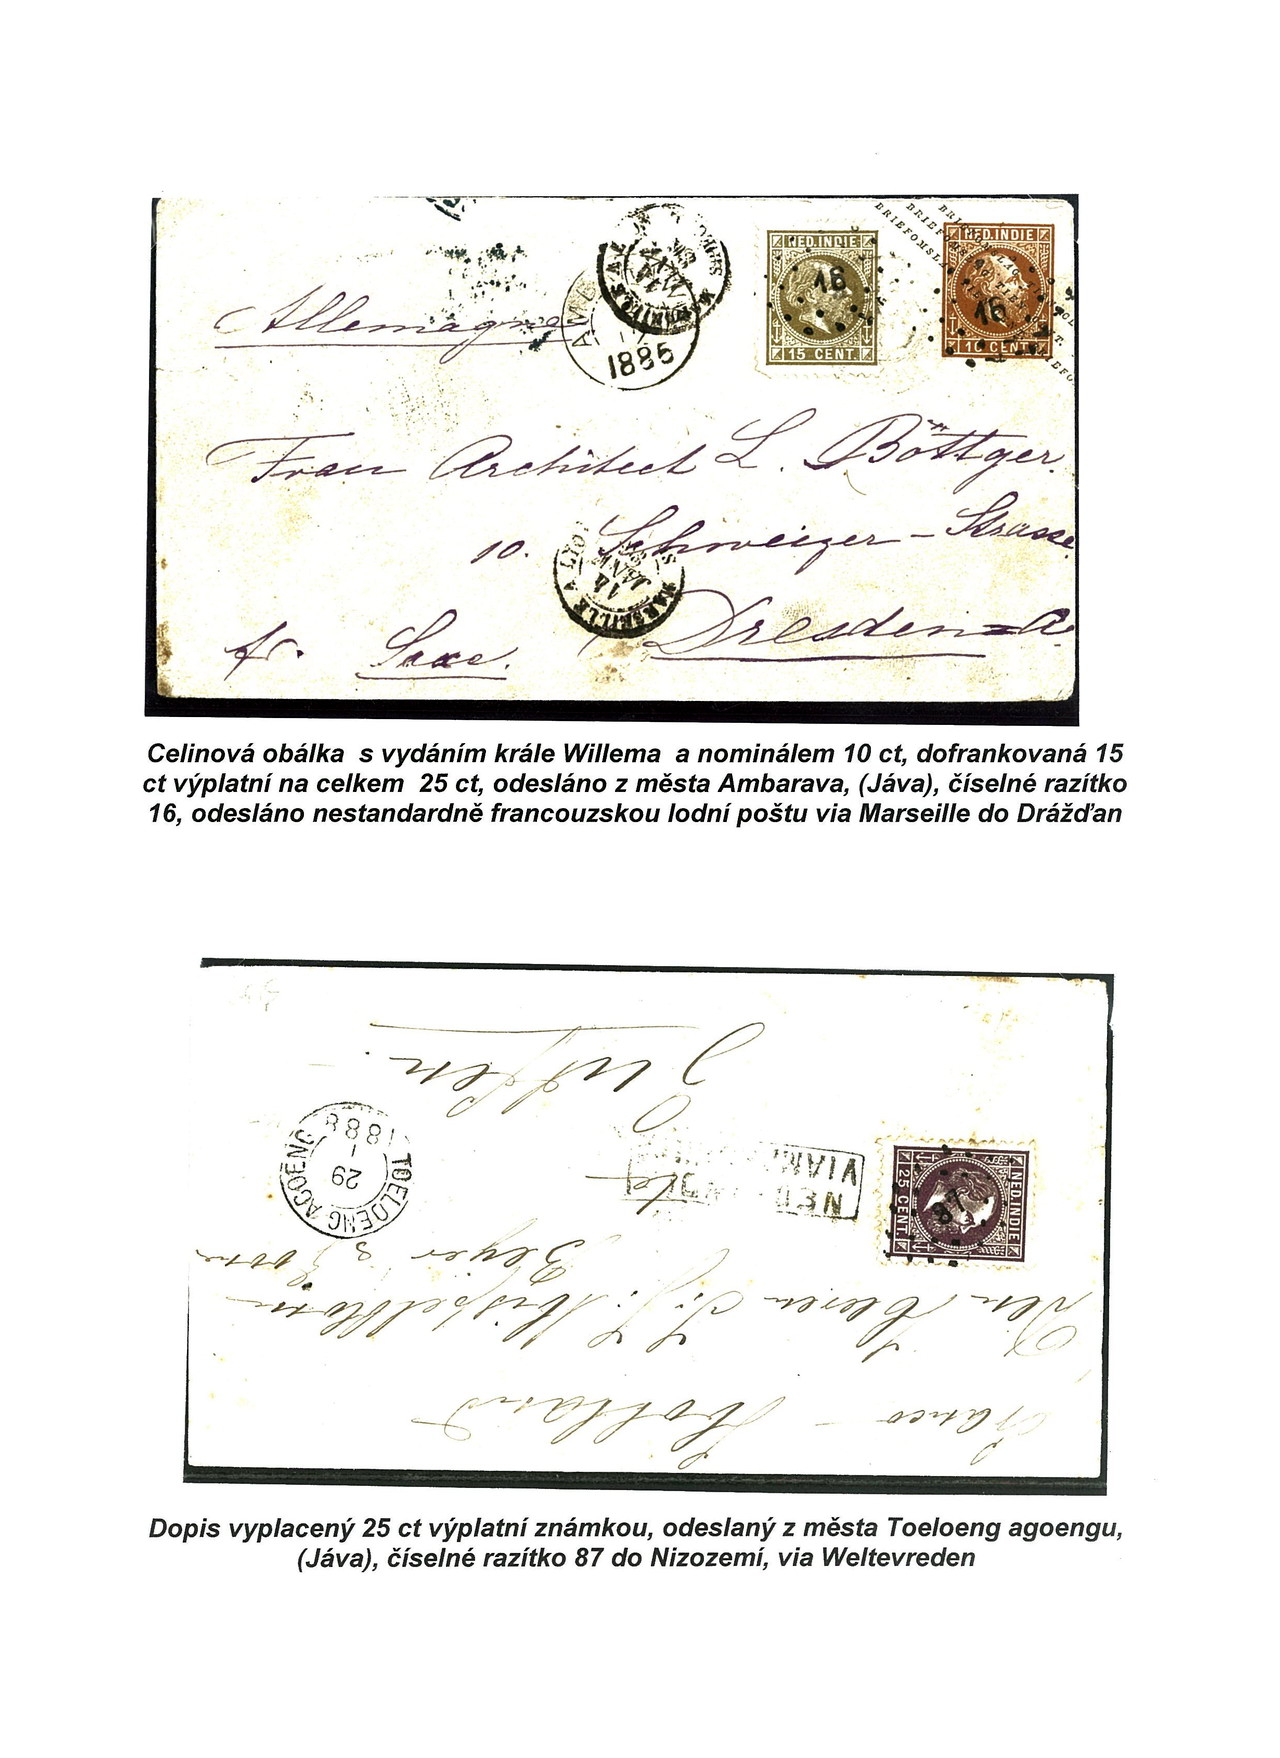 BRIEFOMSLAG
BRIEFOMSLAG
Allemagne
MARSEILLE A LYON
1886
NED. INDIE
16
15 CENT.
NED. INDIE
16
10 CENT
Frau Architect L. Böttger.
10. Schweizer-Strasse
14
JANV
MARSEILLE A LYON
Dresden
fr. Saxe.
Celinová obálka s vydáním krále Willema a nominálem 10 ct, dofrankovaná 15
ct výplatní na celkem 25 ct, odesláno z města Ambarava, (Jáva), číselné razítko
16, odesláno nestandardně francouzskou lodní poštu via Marseille do Drážďan
Franco - Holland
Den Heeren
te
Zutfen.
TOELOENG AGOENG
29
1
1888
NED. INDIE
87
25 CENT.
NED
VIA
Dopis vyplacený 25 ct výplatní známkou, odeslaný z města Toeloeng agoengu,
(Jáva), číselné razítko 87 do Nizozemí, via Weltevreden